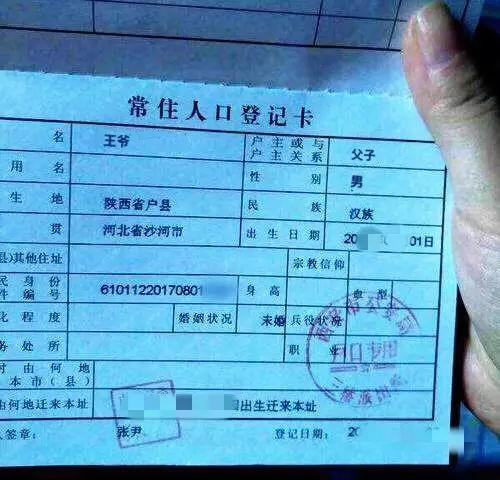 常住人口登记卡
名 王爷 户主或与户主关系 父子
用名 性别 男
生地 陕西省户县 民族 汉族
贯 河北省沙河市 出生日期 20 01日
县)其他住址 宗教信仰
民身份件编号 61011220170801 身高 血型
化程度 婚姻状况 未婚 兵役状况
务处所 职业 户口专用
时由何地本市(县)
由何地迁来本址 出生迁来本址
人签章: 张尹 登记日期: 20